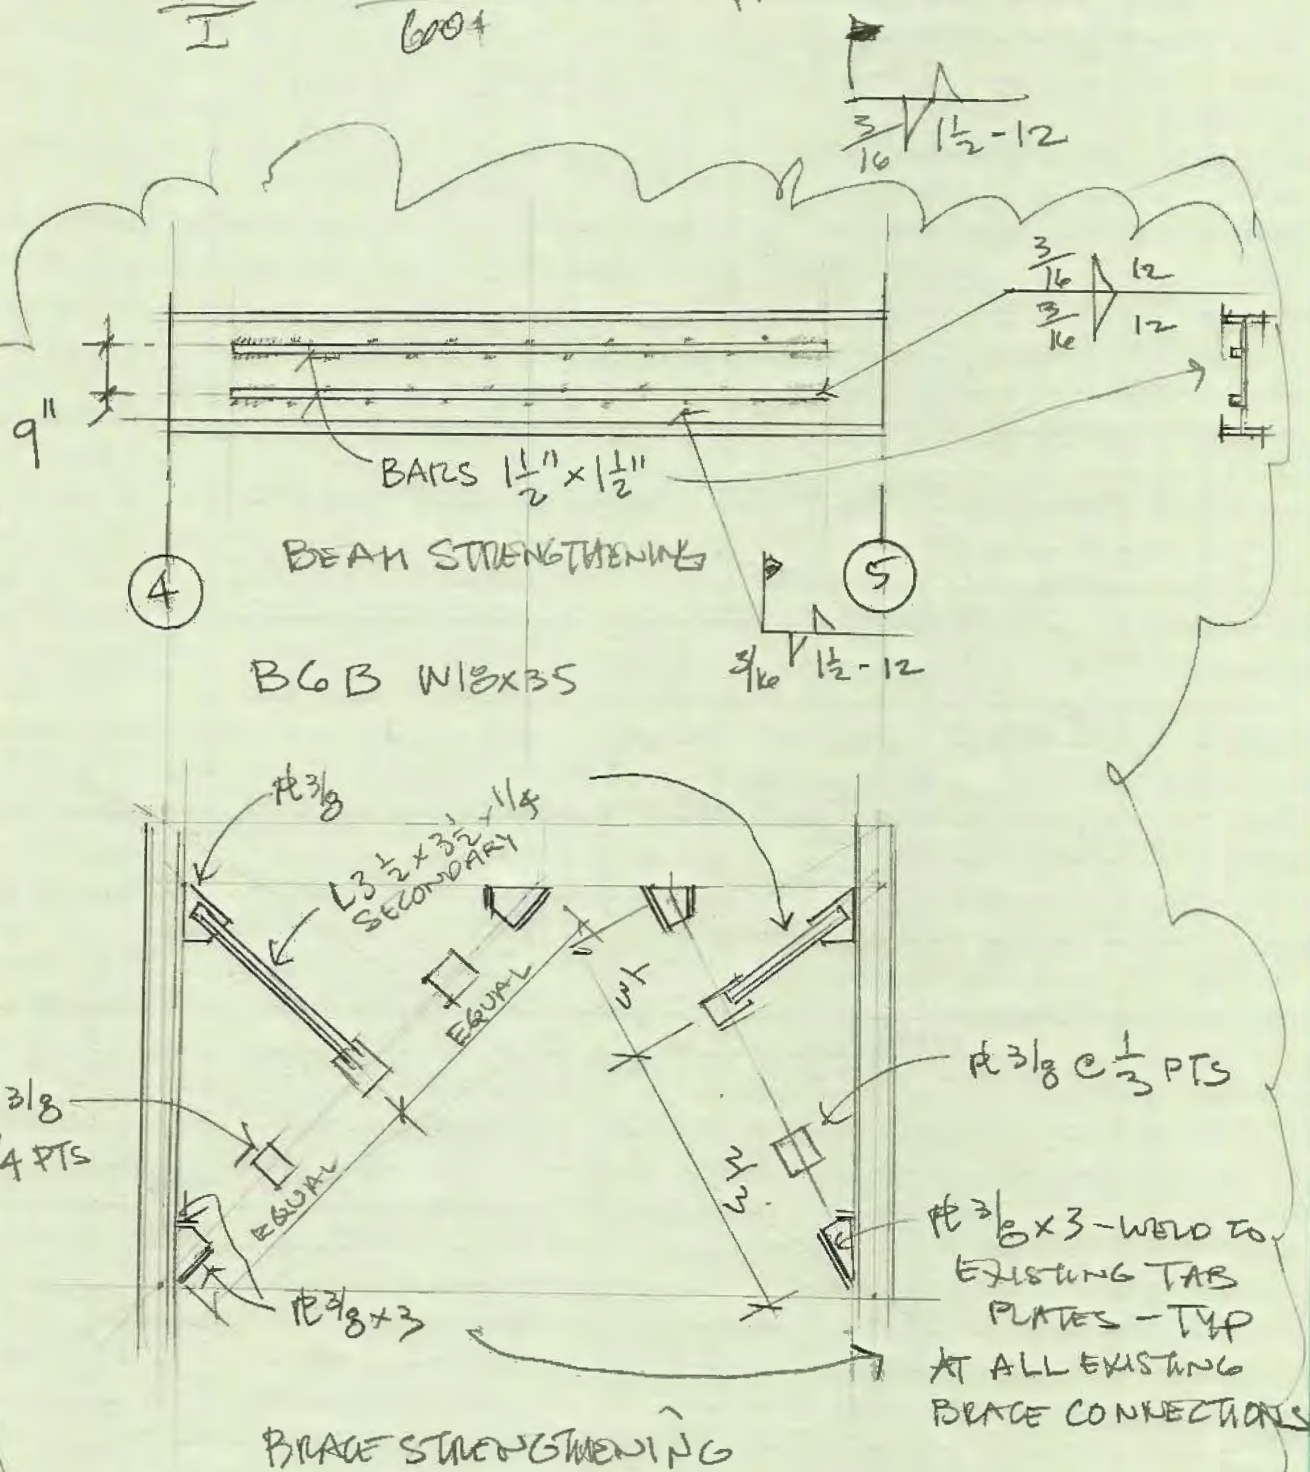 I
600
3/16 1 1/2 - 12
3/16 12
3/16 12
9"
BARS 1 1/2" x 1 1/2"
BEAM STRENGTHENING
4
5
3/16 1 1/2 - 12
B6B W18x35
PL 3/8
L3 1/2 x 3 1/2 x 1/4
SECONDARY
EQUAL
1/3
PL 3/8 @ 1/3 PTS
3/8
/4 PTS
EQUAL
2/3
PL 3/8 x 3 - WELD TO
EXISTING TAB
PLATES - TYP
AT ALL EXISTING
BRACE CONNECTIONS
PL 3/8 x 3
BRACE STRENGTHENING